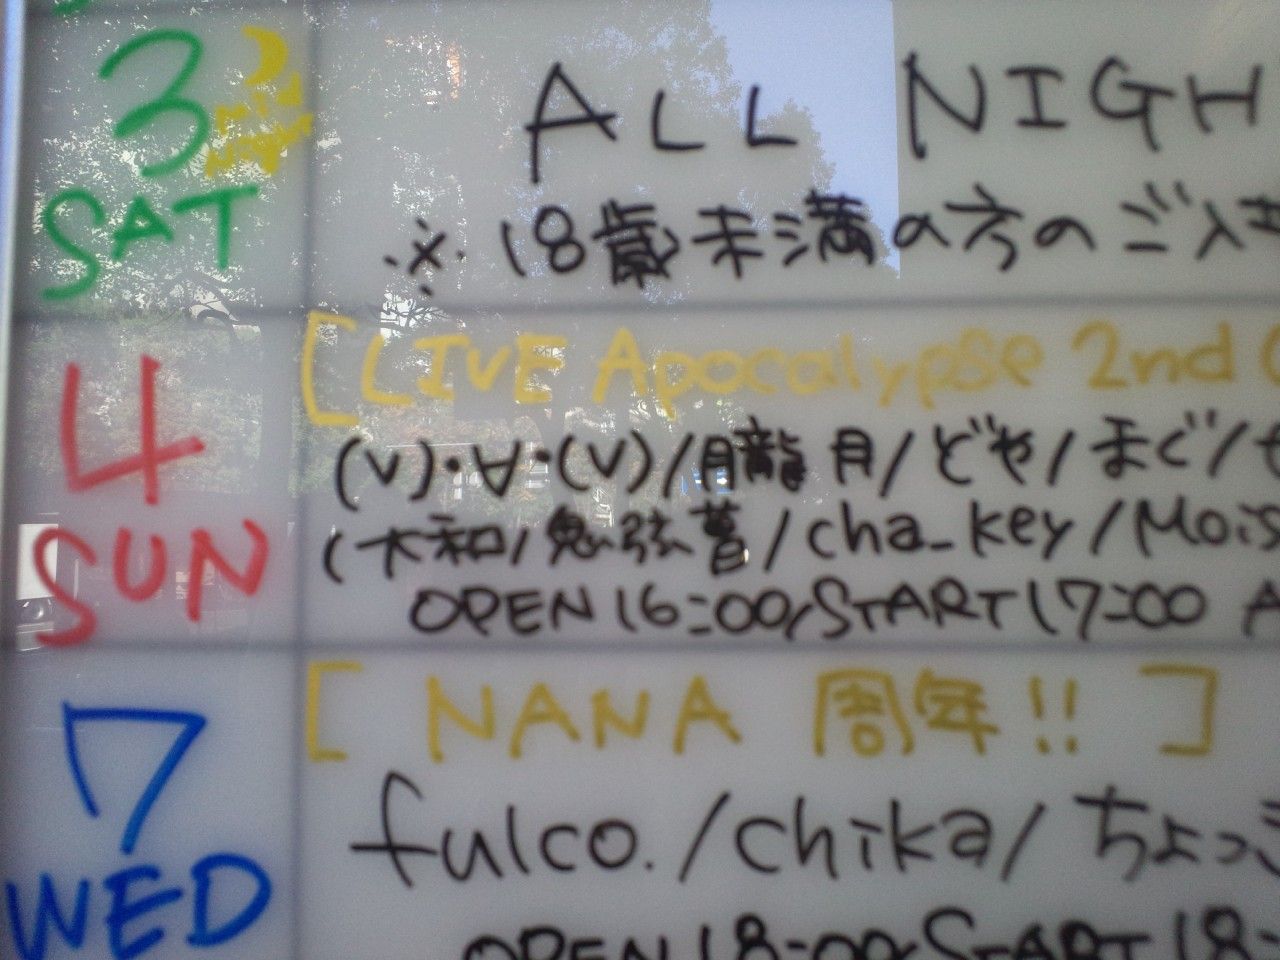 3
SAT
ALL NIGH
※18歳未満の方のご入
4
SUN
[LIVE Apocalypse 2nd
(V)・∀・(V)/朧月/どや/まぐ/
(大和/鬼弦暮/cha_key/Mois
OPEN16:00/START17:00 A
7
WED
[NANA周年!!]
fulco./chika/ちょっ
OPEN18:00/START18: